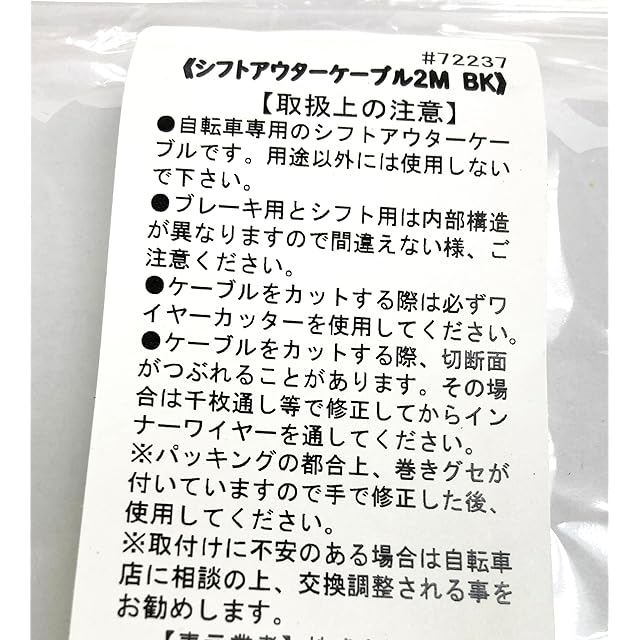 #72237
《シフトアウターケーブル2M BK》
【取扱上の注意】
●自転車専用のシフトアウターケー
ブルです。用途以外には使用しない
で下さい。
●ブレーキ用とシフト用は内部構造
が異なりますので間違えない様、ご
注意ください。
●ケーブルをカットする際は必ずワ
イヤーカッターを使用してください。
●ケーブルをカットする際、切断面
がつぶれることがあります。その場
合は千枚通し等で修正してからイン
ナーワイヤーを通してください。
※パッキングの都合上、巻きグセが
付いていますので手で修正した後、
使用してください。
※取付けに不安のある場合は自転車
店に相談の上、交換調整される事を
お勧めします。